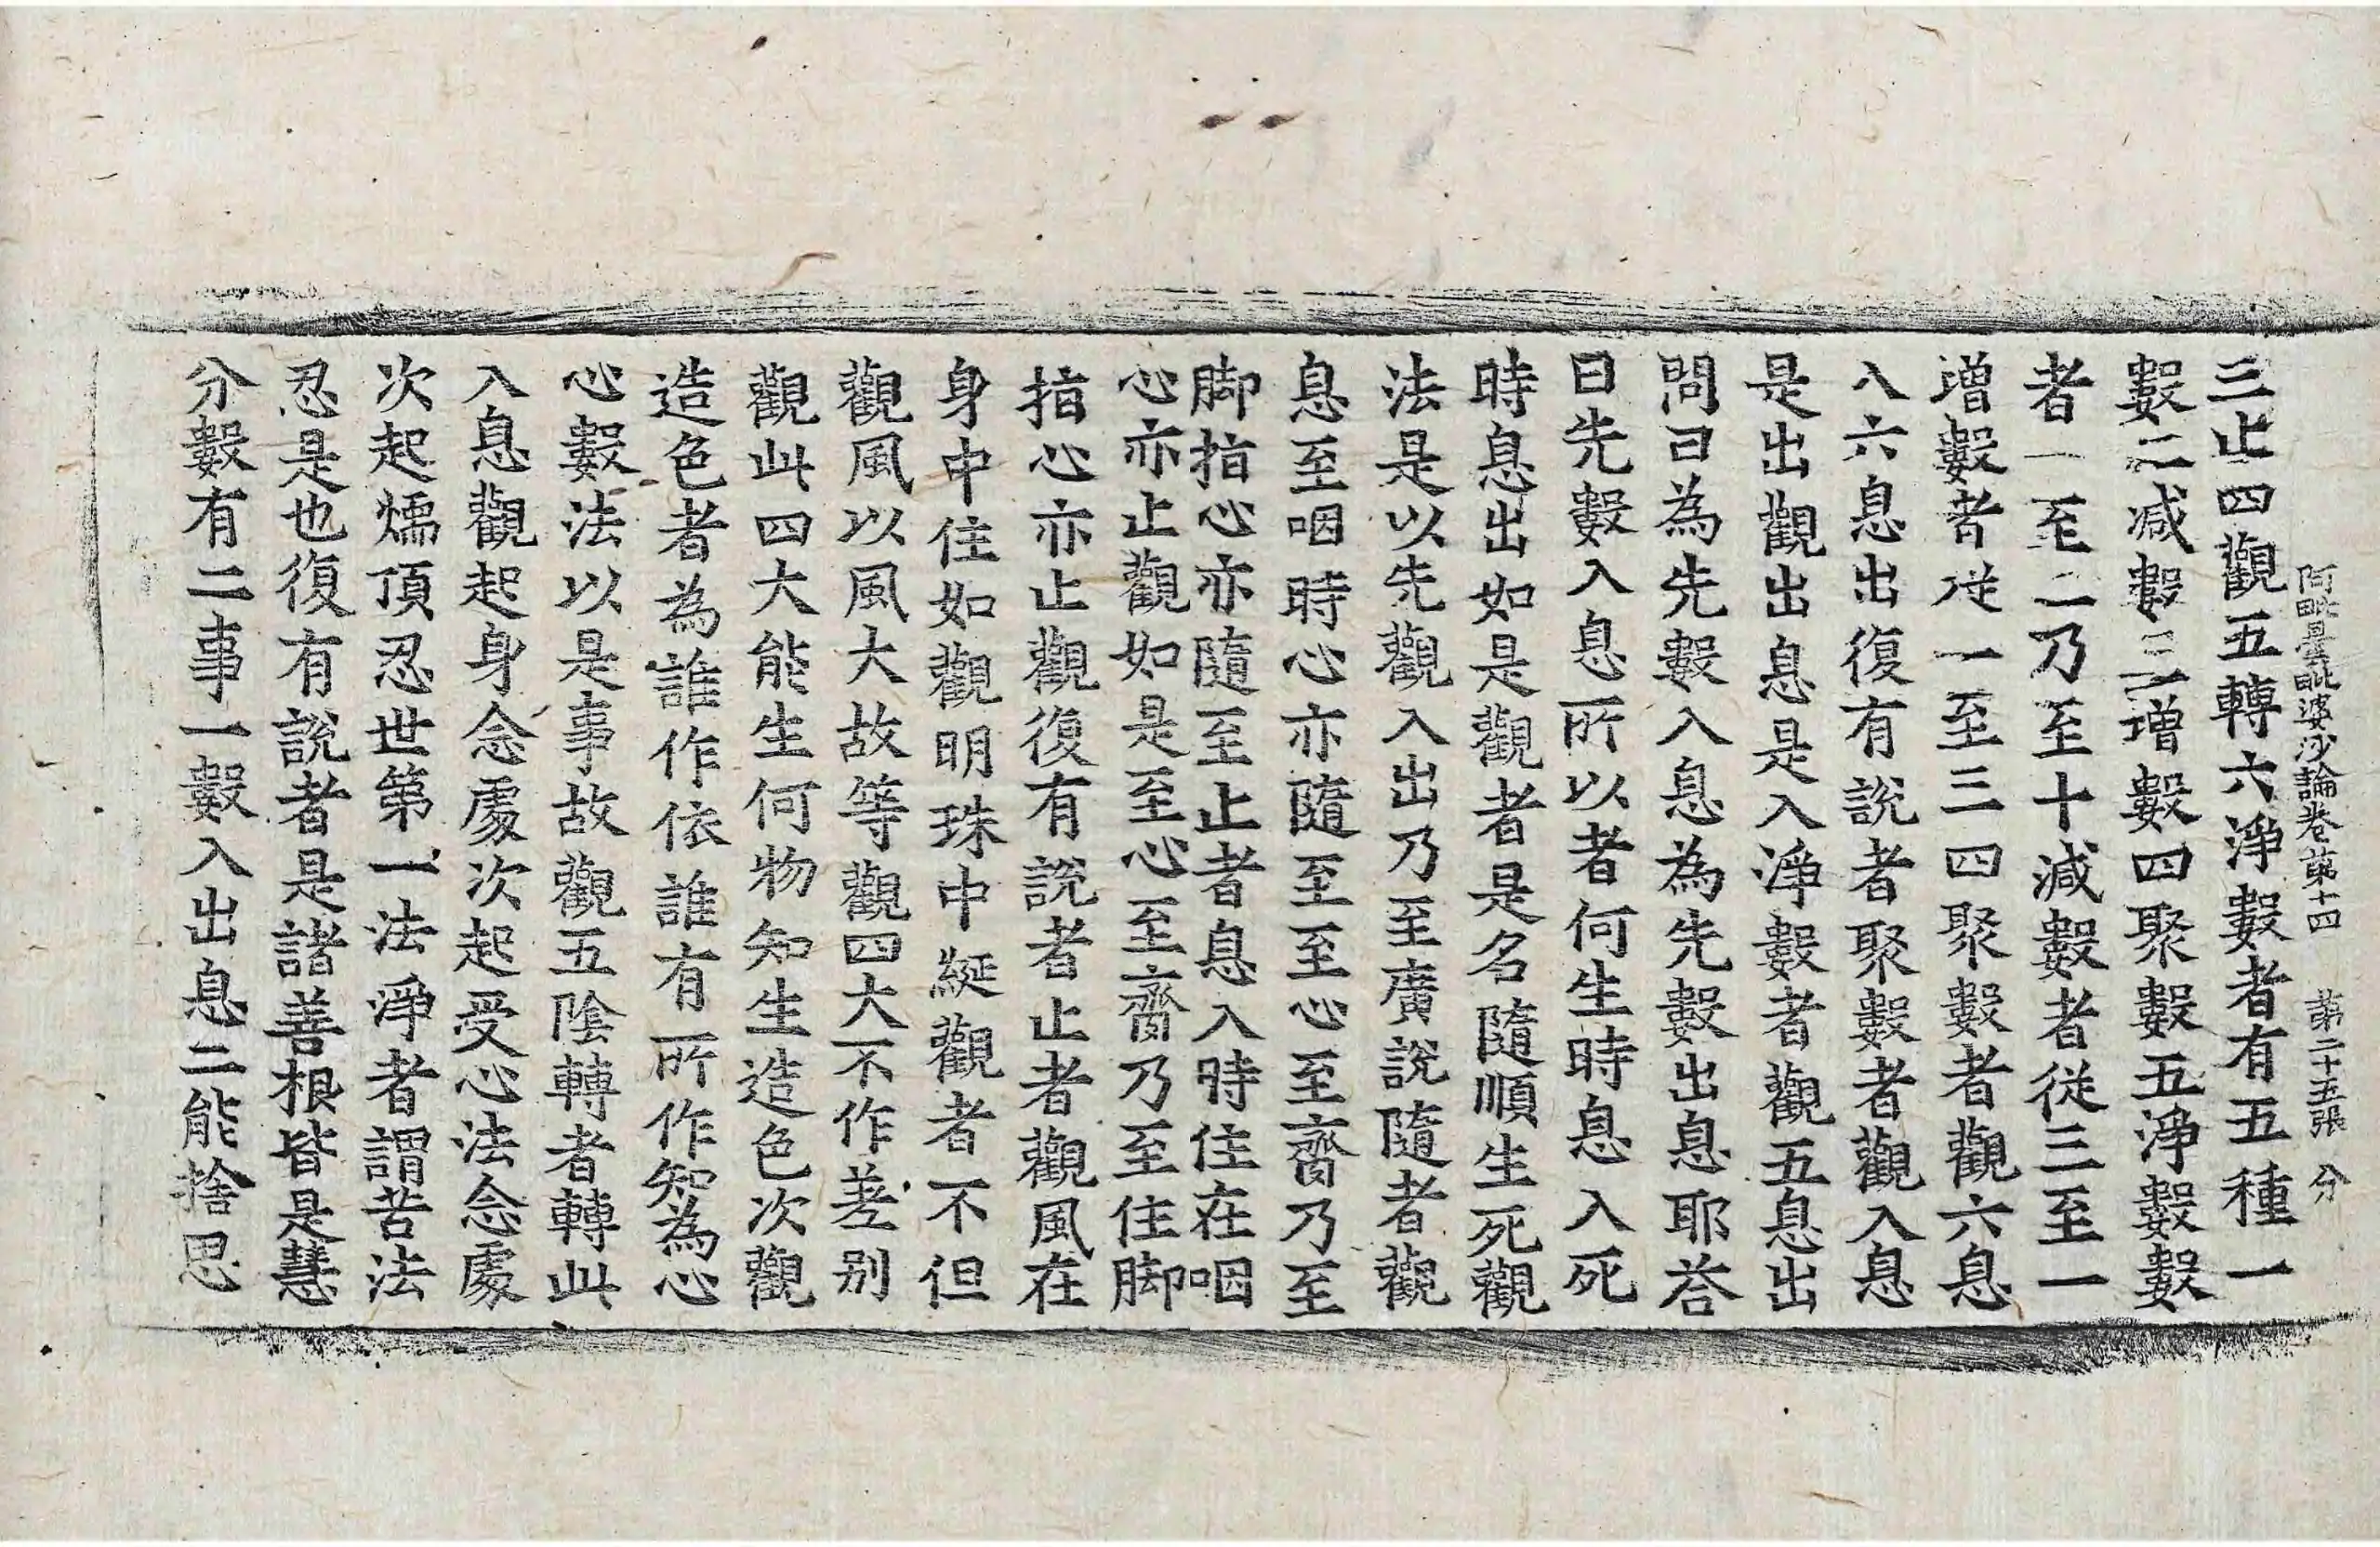 阿毗曇毗婆沙論卷第十四 第二十五張 分
三止四觀五轉六淨數者有五種一
數二減數三增數四聚數五淨數數
者一至二乃至十減數者從三至一
增數者從一至三四聚數者觀六息
入六息出復有說者聚數者觀入息
是出觀出息是入淨數者觀五息出
問曰為先數入息為先數出息耶荅
曰先數入息所以者何生時息入死
時息出如是觀者是名隨順生死觀
法是以先觀入出乃至廣說隨者觀
息至咽時心亦隨至至心至齎乃至
脚指心亦隨至止者息入時住在咽
心亦止觀如是至心至齎乃至住脚
指心亦止觀復有說者止者觀風在
身中住如觀明珠中綖觀者不但
觀風以風大故等觀四大不作差别
觀此四大能生何物知生造色次觀
造色者為誰作依誰有所作知為心
心數法以是事故觀五陰轉者轉此
入息觀起身念處次起受心法念處
次起燸頂忍世第一法淨者謂苦法
忍是也復有說者是諸善根皆是慧
分數有二事一數入出息二能捨思